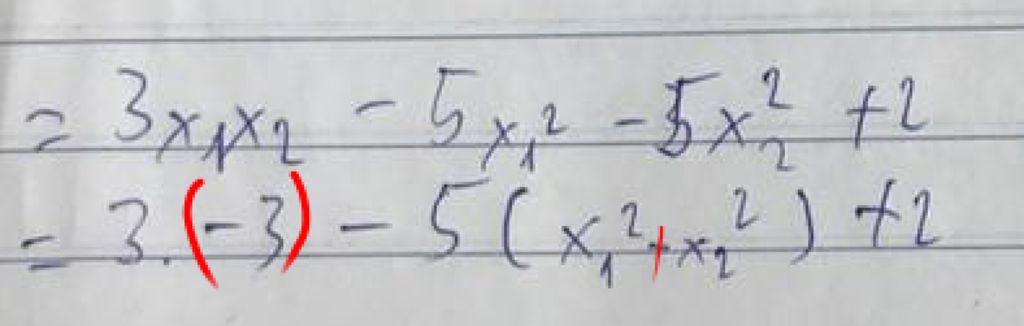 = 3x₁x₂ - 5x₁² - 5x₂² + 2
= 3.(-3) - 5(x₁² + x₂²) + 2